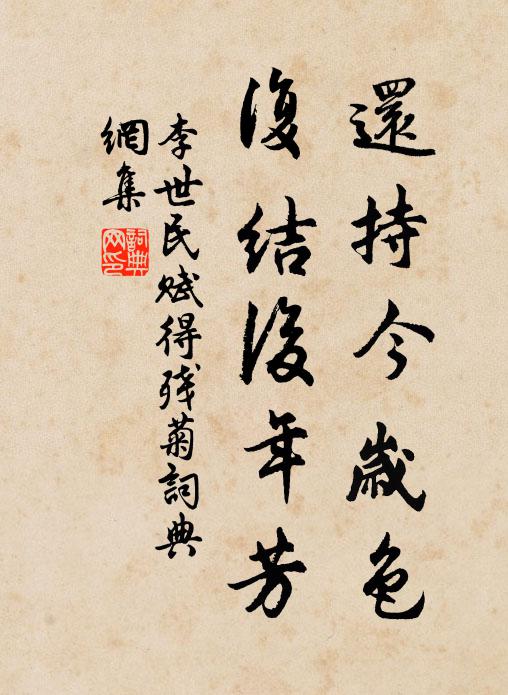 還持今歲色
復結後年芳
李世民賦得殘菊詞典
網集
詞典網印